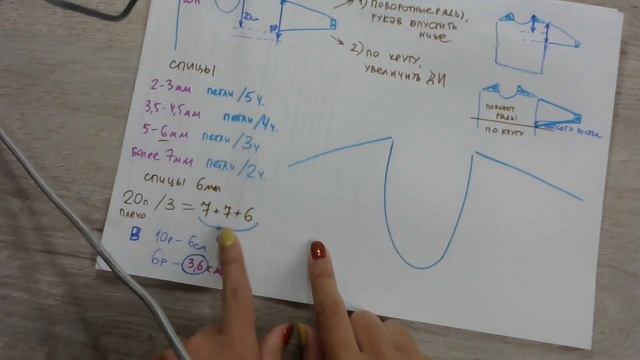 1) ПОВОРОТНЫЕ РЯДЫ,
РУКАВ ОПУСТИТЬ
НИЖЕ
2) ПО КРУГУ,
УВЕЛИЧИТЬ ДИ
СПИЦЫ
2-3мм ПЕТЛИ/5ч.
3,5-4,5мм ПЕТЛИ/4ч.
5-6мм ПЕТЛИ/3ч.
более 7мм ПЕТЛИ/2ч.
СПИЦЫ 6мм
20п /3 = 7+7+6
ПЛЕЧО
В 10р - 6см
6р - 3,6
ПОВОРОТ.
РЯДЫ
ПО КРУГУ